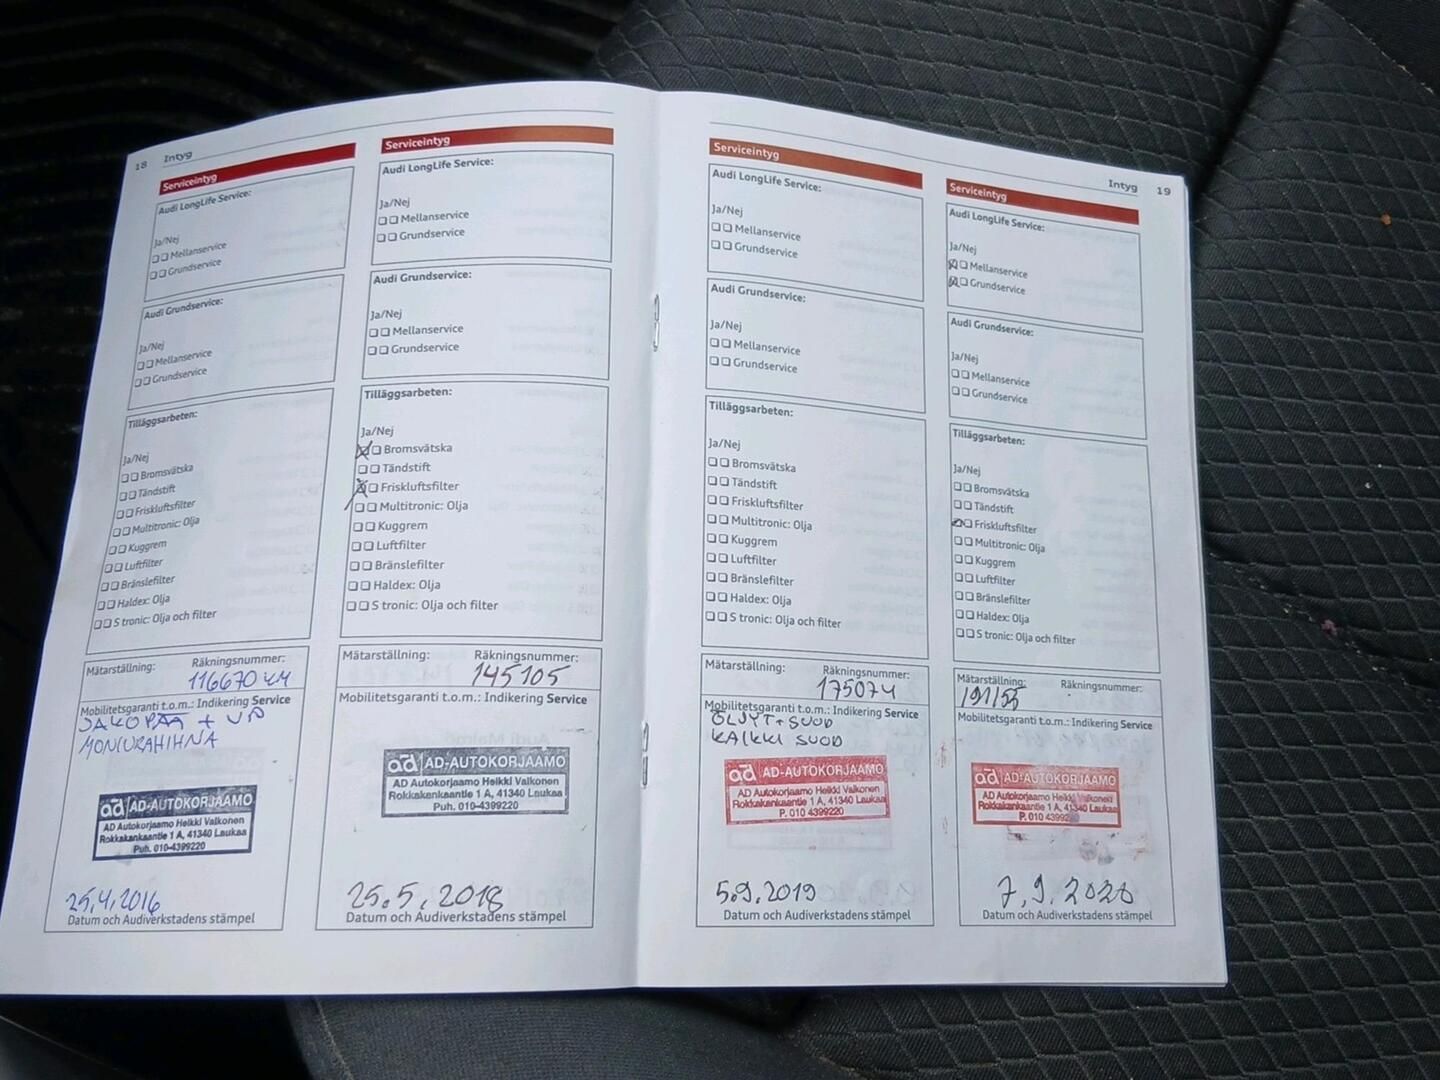 18 Intyg
Serviceintyg
Audi LongLife Service:
Ja/Nej
Mellanservice
Grundservice
Audi Grundservice:
Ja/Nej
Mellanservice
Grundservice
Tilläggsarbeten:
Ja/Nej
Bromsvätska
Tändstift
Friskluftsfilter
Multitronic: Olja
Kuggrem
Luftfilter
Bränslefilter
Haldex: Olja
S tronic: Olja och filter
Mätarställning: Räkningsnummer:
116670 KM
Mobilitetsgaranti t.o.m.: Indikering Service
JAKOPÄÄ + VP
MONIURAHIHNA
ad AD-AUTOKORJAAMO
AD Autokorjaamo Heikki Valkonen
Rokkakankaantie 1 A, 41340 Laukaa
Puh. 010-4399220
25.4.2016
Datum och Audiverkstadens stämpel
Serviceintyg
Audi LongLife Service:
Ja/Nej
Mellanservice
Grundservice
Audi Grundservice:
Ja/Nej
Mellanservice
Grundservice
Tilläggsarbeten:
Ja/Nej
Bromsvätska
Tändstift
Friskluftsfilter
Multitronic: Olja
Kuggrem
Luftfilter
Bränslefilter
Haldex: Olja
S tronic: Olja och filter
Mätarställning: Räkningsnummer:
145105
Mobilitetsgaranti t.o.m.: Indikering Service
ad AD-AUTOKORJAAMO
AD Autokorjaamo Heikki Valkonen
Rokkakankaantie 1 A, 41340 Laukaa
Puh. 010-4399220
25.5.2018
Datum och Audiverkstadens stämpel
Serviceintyg
Audi LongLife Service:
Ja/Nej
Mellanservice
Grundservice
Audi Grundservice:
Ja/Nej
Mellanservice
Grundservice
Tilläggsarbeten:
Ja/Nej
Bromsvätska
Tändstift
Friskluftsfilter
Multitronic: Olja
Kuggrem
Luftfilter
Bränslefilter
Haldex: Olja
S tronic: Olja och filter
Mätarställning: Räkningsnummer:
175074
Mobilitetsgaranti t.o.m.: Indikering Service
ÖLJYT + SUOD
KAIKKI SUOD
ad AD-AUTOKORJAAMO
AD Autokorjaamo Heikki Valkonen
Rokkakankaantie 1 A, 41340 Laukaa
P. 010 4399220
5.9.2019
Datum och Audiverkstadens stämpel
Intyg 19
Serviceintyg
Audi LongLife Service:
Ja/Nej
Mellanservice
Grundservice
Audi Grundservice:
Ja/Nej
Mellanservice
Grundservice
Tilläggsarbeten:
Ja/Nej
Bromsvätska
Tändstift
Friskluftsfilter
Multitronic: Olja
Kuggrem
Luftfilter
Bränslefilter
Haldex: Olja
S tronic: Olja och filter
Mätarställning: Räkningsnummer:
Mobilitetsgaranti t.o.m.: Indikering Service
ad AD-AUTOKORJAAMO
AD Autokorjaamo Heikki Valkonen
Rokkakankaantie 1 A, 41340 Laukaa
P. 010 4399220
7.9.2020
Datum och Audiverkstadens stämpel